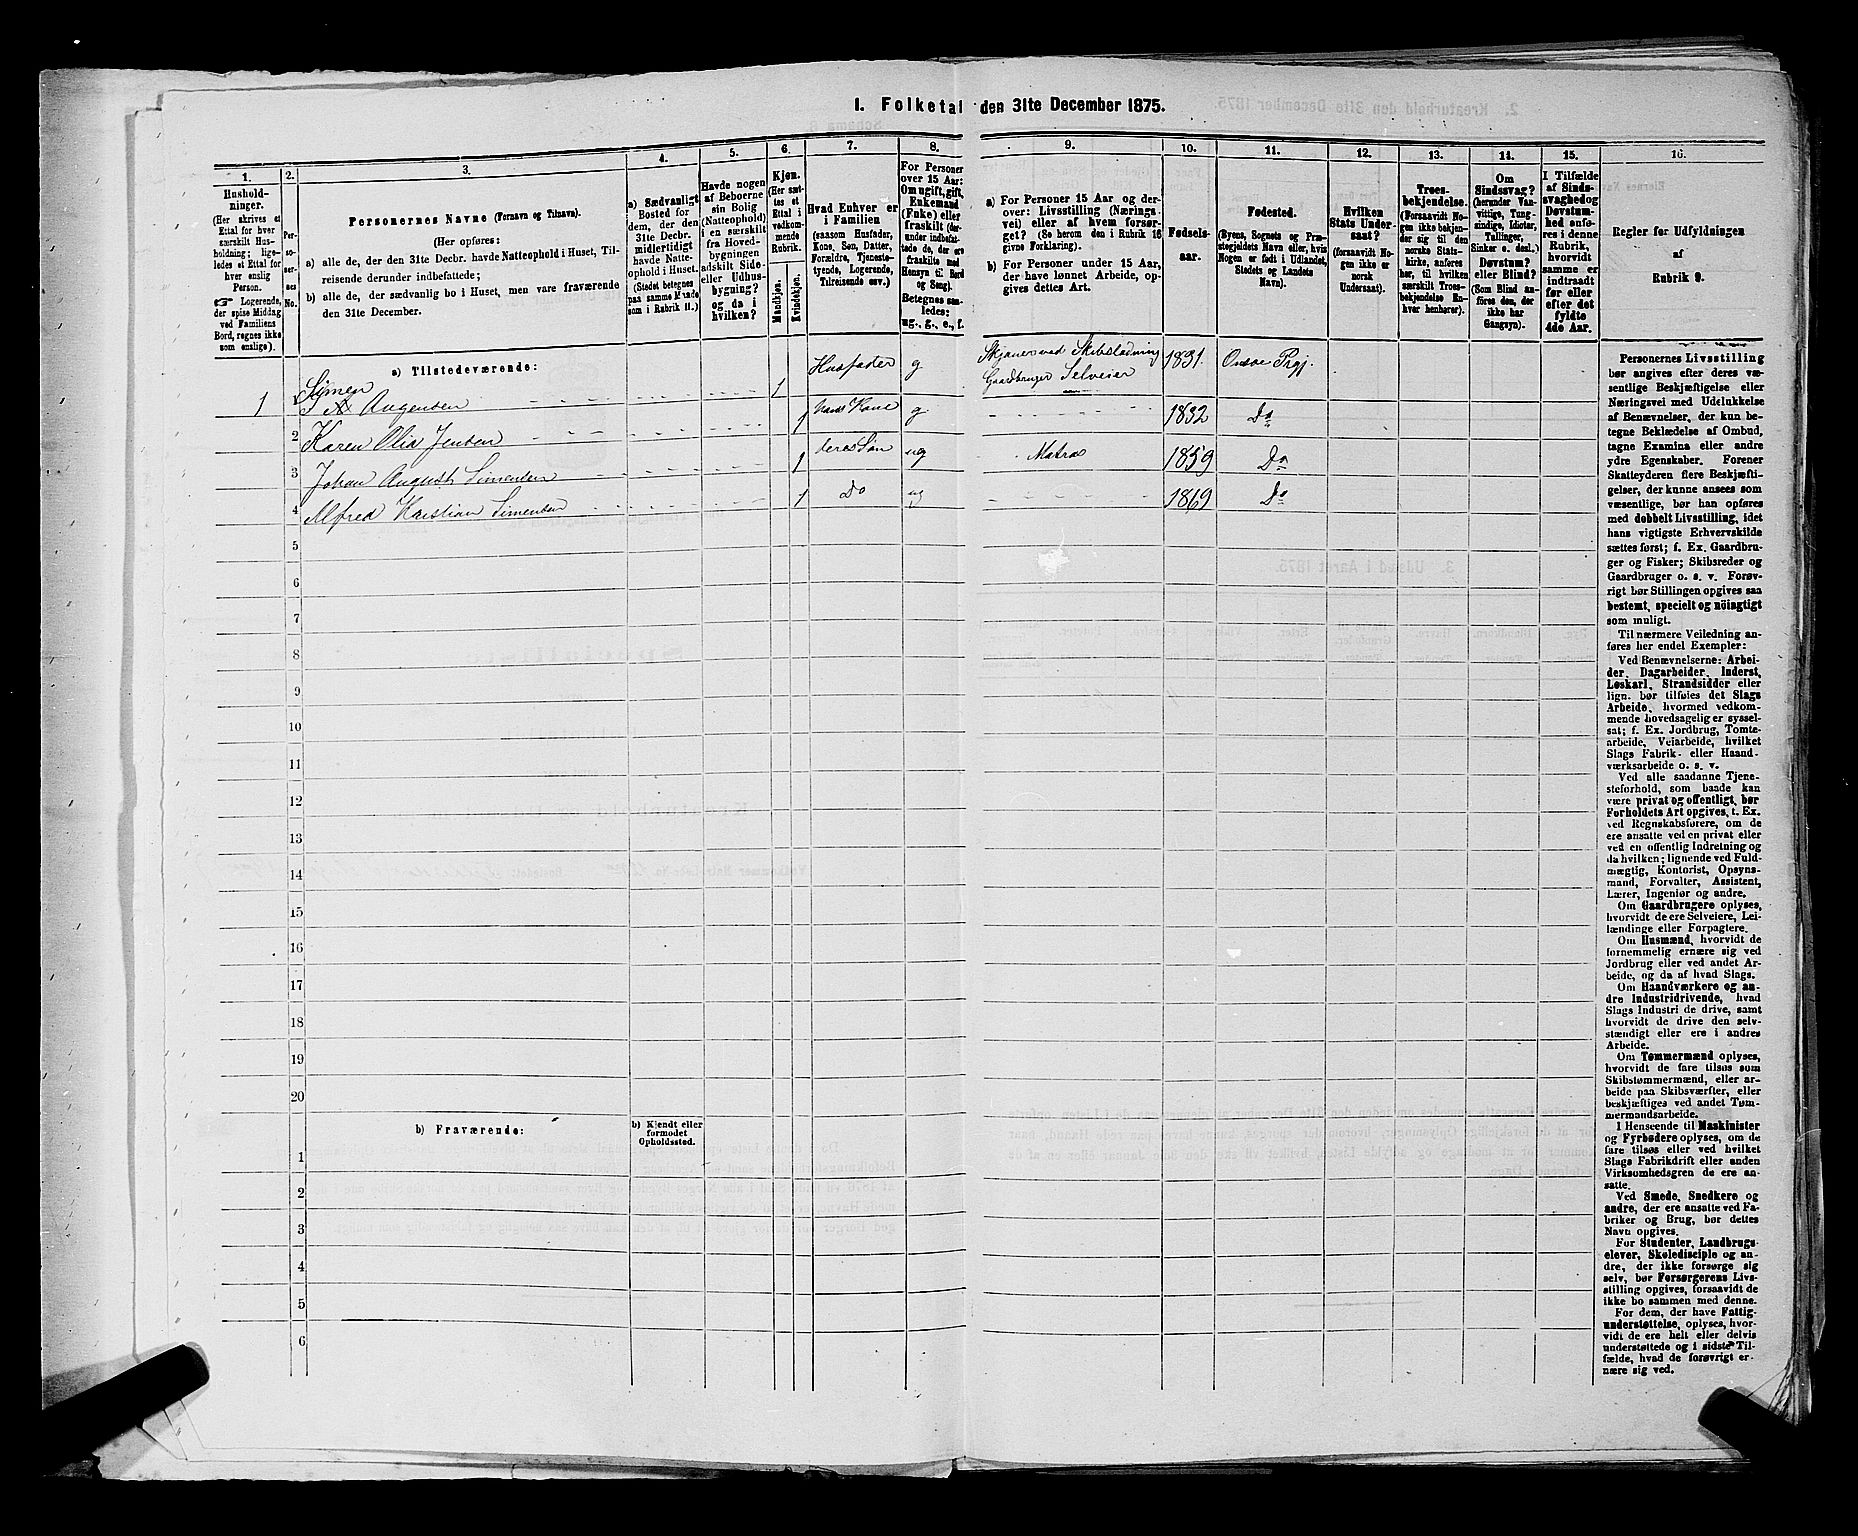 I. Folketal den 31te December 1875.
1.
2.
3.
4.
5.
6.
7.
8.
9.
10.
11.
12.
13.
14.
15.
16.
Hushold-
ninger.
(Her skrives et
Ettal for hver
særskilt Hus-
holdning; lige-
ledes et Ettal for
hver enslig
Person.
☞ Logerende,
der spise Middag
ved Familiens
Bord, regnes ikke
som enslige).
Per-
so-
ner-
nes
No.
Personernes Navne (Fornavn og Tilnavn).
(Her opføres:
a) alle de, der den 31te Decbr. havde Natteophold i Huset, Til-
reisende derunder indbefattede;
b) alle de, der sædvanlig bo i Huset, men vare fraværende
den 31te December.
a) Sædvanligt
Bosted for
dem, der den
31te Decbr.
midlertidigt
havde Natte-
ophold i Huset.
(Stedet betegnes
paa samme Maade
som i Rubrik 11.)
Havde nogen
af Beboerne
sin Bolig
(Natteophold)
i en særskilt
fra Hoved-
bygningen
adskilt Side-
eller Udhus-
bygning?
og da i
hvilken?
Kjøn.
(Her sæt-
tes et
Ettal i
vedkom-
mende
Rubrik.
Mandkjøn.
Kvindekjøn.
Hvad Enhver er
i Familien
(saasom Husfader,
Kone, Søn, Datter,
Forældre, Tjeneste-
tyende, Logerende,
Tilreisende osv.)
For Personer
over 15 Aar:
Om ugift, gift,
Enkemand
(Enke) eller
fraskilt (der-
under indbefat-
tede de, der ere
fraskilte med
Hensyn til Bord
og Seng).
Betegnes saa-
ledes:
ug., g., e., f.
a) For Personer 15 Aar og der-
over: Livsstilling (Nærings-
vei) eller af hvem forsør-
get? (Se herom den i Rubrik 16
givne Forklaring).
b) For Personer under 15 Aar,
der have lønnet Arbeide, op-
gives dettes Art.
Fødsels-
aar.
Fødested.
(Byens, Sognets og Præ-
stegjeldets Navn eller, hvis
Nogen er født i Udlandet,
Stedets og Landets
Navn).
Hvilken
Stats Under-
saat?
(forsaavidt No-
gen ikke er
norsk
Undersaat).
Troes-
bekjendelse.
(Forsaavidt No-
gen ikke bekjen-
der sig til den
norske Stats-
kirke, anføres
her, til hvilken
særskilt Troes-
bekjendelse En-
hver henhører).
Om
Sindssvag?
(herunder Van-
vittige, Tung-
sindige, Idioter,
Tullinger,
Sinker o. desl.)
Døvstum?
eller Blind?
(Som Blind an-
føres den, der
ikke har
Gangsyn).
I Tilfælde
af Sinds-
svaghed og
Døvstum-
hed anfø-
res i denne
Rubrik,
hvorvidt
samme er
indtraadt
før eller
efter det
fyldte
4de Aar.
Regler for Udfyldningen
af
Rubrik 9.
a) Tilstedeværende:
1 Simen Augensen 1 Husfader g Skjauer ved Skibsladning Gaardbruger Selveier 1831. Onsøe Prgj.
2 Karen Olia Jensen 1 hans Kone g 1832 Do
3 Johan August Simensen 1 deres Søn ug Matros 1859 Do
4 Alfred Kristian Simensen 1 Do ug 1869 Do
5
6
7
8
9
10
11
12
13
14
15
16
17
18
19
20
b) Fraværende:
b) Kjendt eller
formodet
Opholdssted.
1
2
3
4
5
6
Personernes Livsstilling
bør angives efter deres væ-
sentlige Beskjæftigelse eller
Næringsvei med Udelukkelse
af Benævnelser, der kun be-
tegne Beklædelse af Ombud,
tagne Examina eller andre
ydre Egenskaber. Forener
Skatteyderen flere Beskjæfti-
gelser, der kunne ansees som
væsentlige, bør han opføres
med dobbelt Livsstilling, idet
hans vigtigste Erhvervskilde
sættes først; f. Ex. Gaardbru-
ger og Fisker; Skibsreder og
Gaardbruger o. s. v. Forøv-
rigt bør Stillingen opgives saa
bestemt, specielt og nöiagtigt
som muligt.
Til nærmere Veiledning an-
føres her endel Exempler:
Ved Benævnelserne: Arbei-
der, Dagarbeider, Inderst,
Løskarl, Strandsidder eller
lign. bør tilføies det Slags
Arbeide, hvormed vedkom-
mende hovedsagelig er syssel-
sat; f. Ex. Jordbrug, Tomte-
arbeide, Veiarbeide, hvilket
Slags Fabrik- eller Haand-
værksarbeide o. s. v.
Ved alle saadanne Tjene-
steforhold, som baade kan
være privat og offentligt, bør
Forholdets Art opgives, t. Ex.
ved Regnskabsførere, om de
ere ansatte ved en privat eller
ved en offentlig Indretning og
da hvilken; lignende ved Fuld-
mægtig, Kontorist, Opsyns-
mand, Forvalter, Assistent,
Lærer, Ingeniør og andre.
Om Gaardbrugere oplyses,
hvorvidt de ere Selveiere, Lei-
lændinge eller Forpagtere.
Om Husmænd, hvorvidt de
fornemmelig ernære sig ved
Jordbrug eller ved andet Ar-
beide, og da af hvad Slags.
Om Haandværkere og an-
dre Industridrivende, hvad
Slags Industri de drive, samt
hvorvidt de drive den selv-
stændigt eller ere i andres
Arbeide.
Om Tømmermænd oplyses,
hvorvidt de fare tilsøs som
Skibstømmermænd, eller ar-
beide paa Skibsværfter, eller
beskjæftiges ved andet Tøm-
mermandsarbeide.
I Henseende til Maskinister
og Fyrbødere oplyses, om de
fare tilsøs eller ved hvilket
Slags Fabrikdrift eller anden
Virksomhedsgren de ere an-
satte.
Ved Smede, Snedkere og
andre, der ere ansatte ved Fa-
briker og Brug, bør dettes
Navn opgives.
For Studenter, Landbrugs-
elever, Skoledisciple og an-
dre, der ikke forsørge sig
selv, bør Forsørgerens Livs-
stilling opgives, forsaavidt de
ikke bo sammen med denne.
For dem, der have Fattig-
understøttelse, oplyses, hvor-
vidt de ere helt eller delvis
understøttede og i sidste Til-
fælde, hvad de forøvrigt er-
nære sig ved.